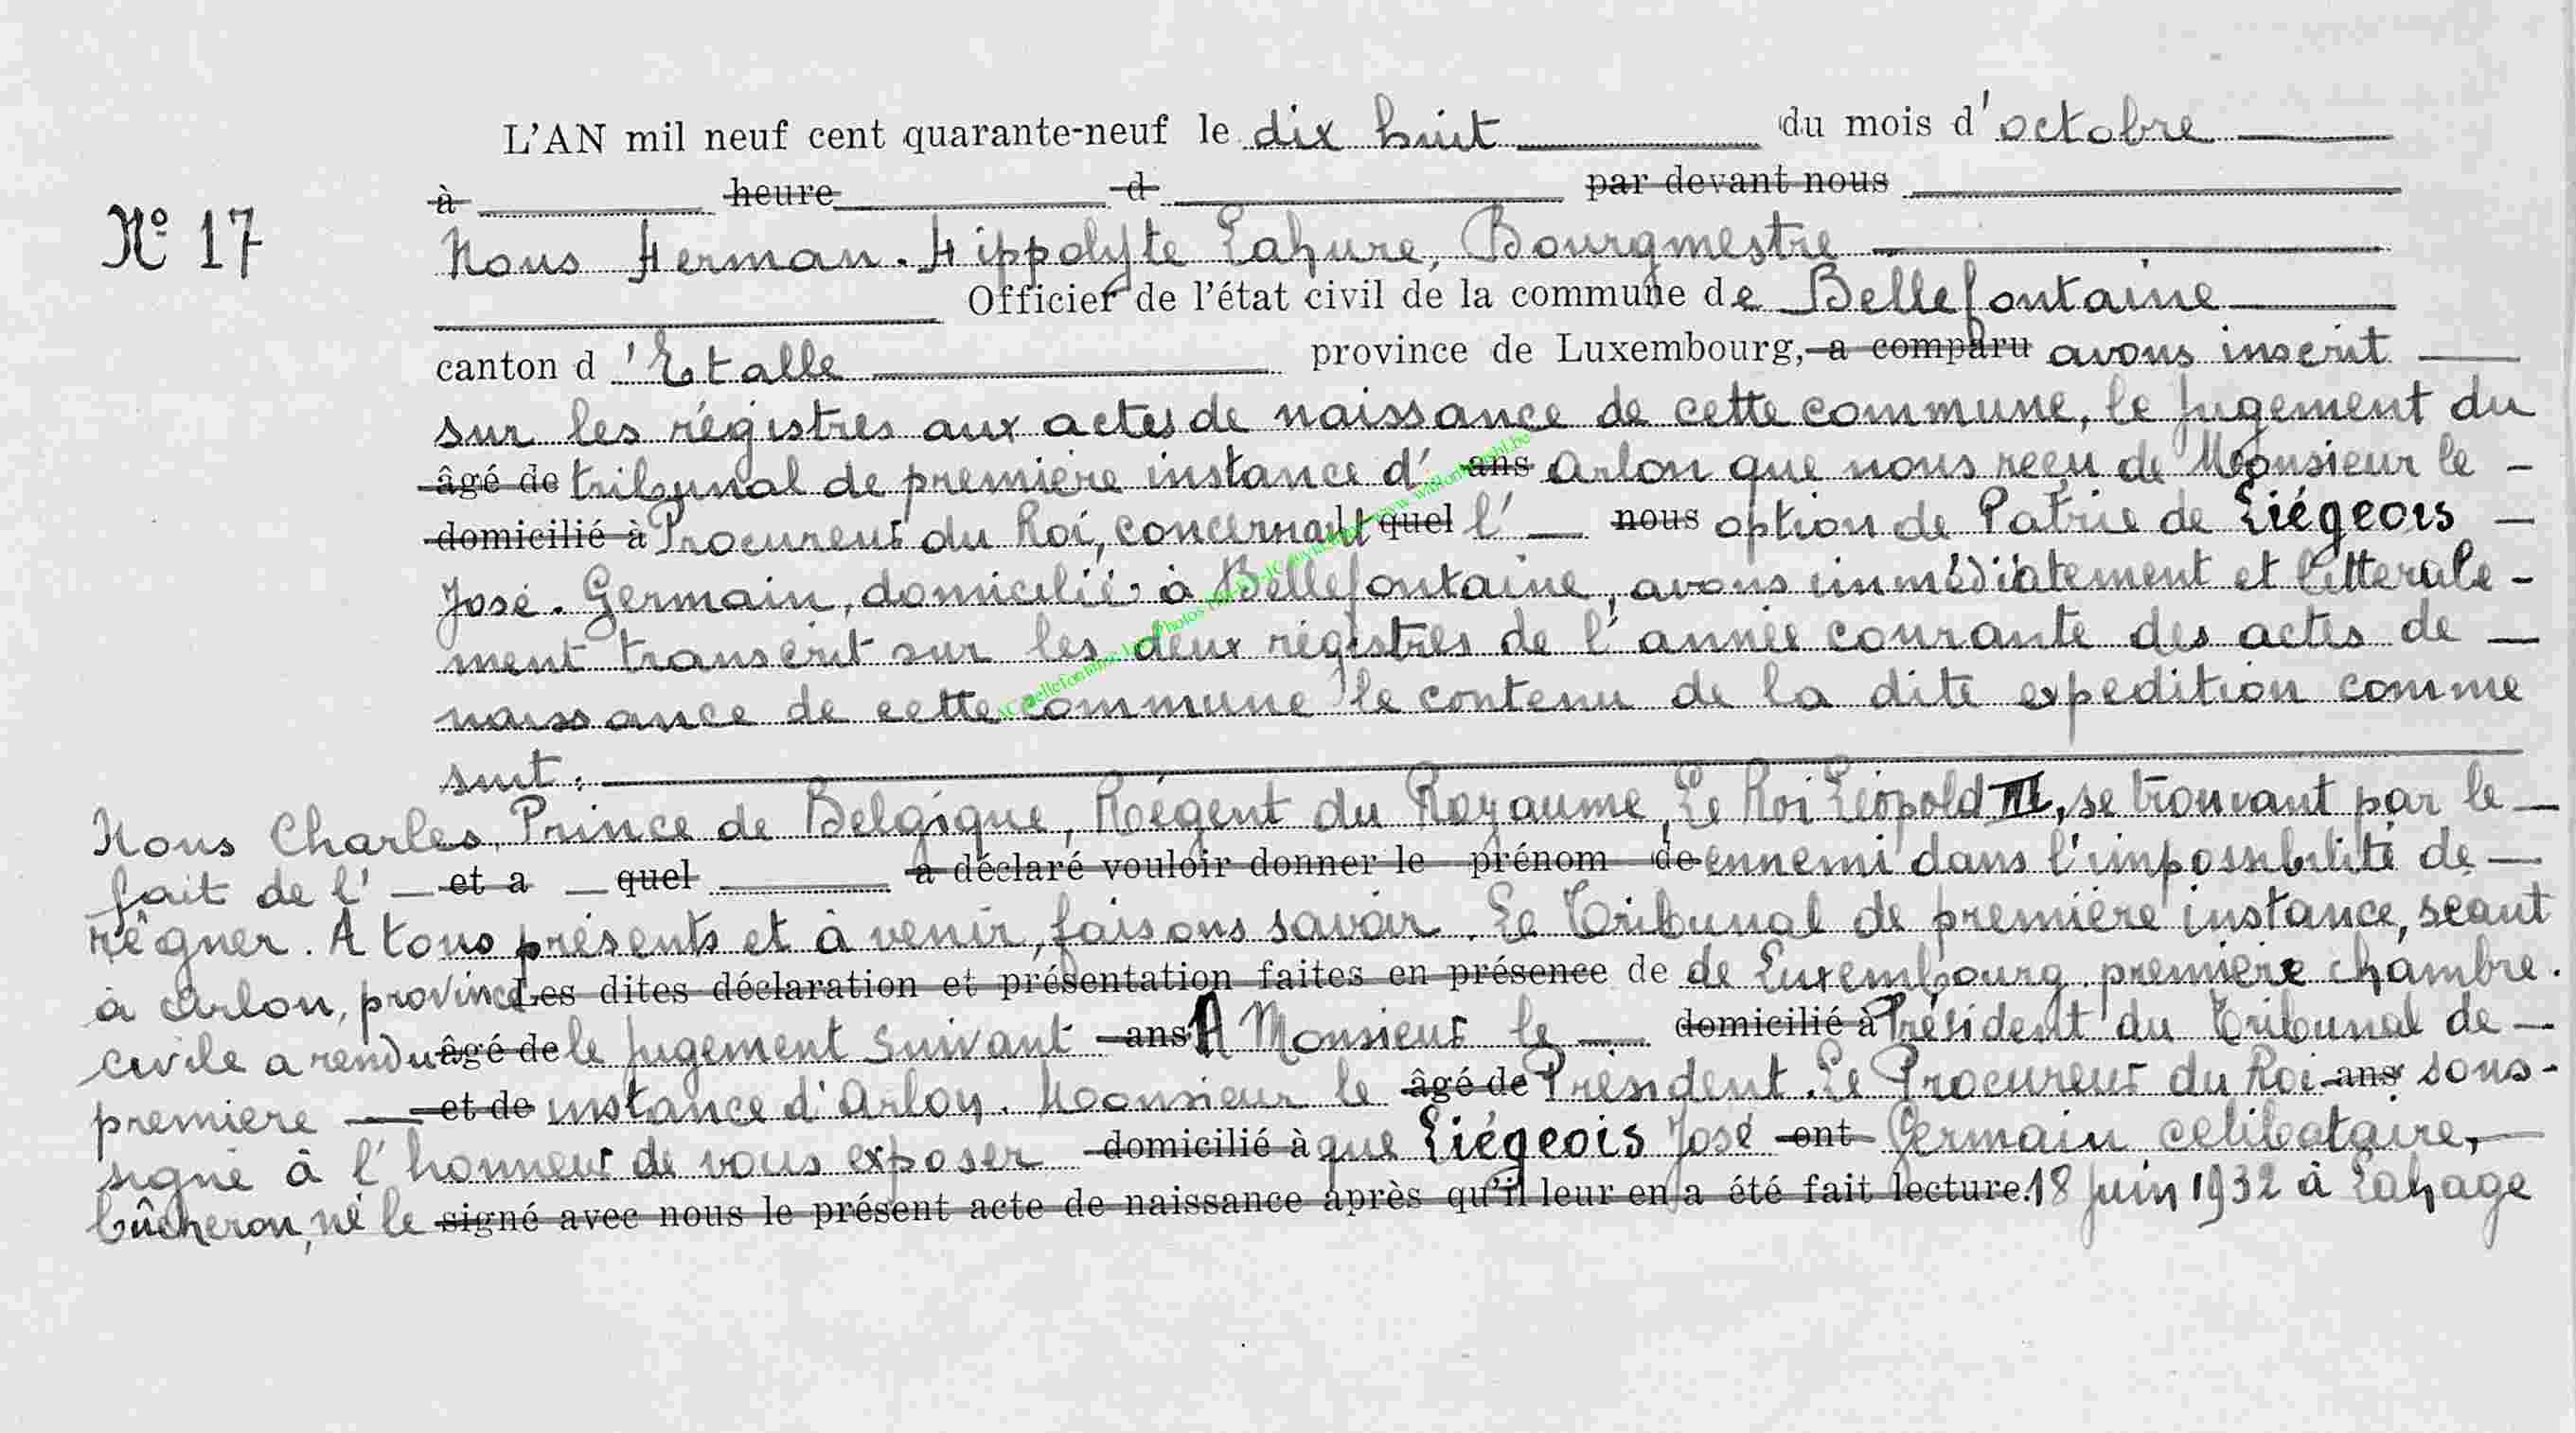 L'AN mil neuf cent quarante-neuf le dix huit du mois d'octobre
à heure d par devant nous
N° 17
Nous Herman. Hippolyte Lahure, Bourgmestre
Officier de l'état civil de la commune de Bellefontaine
canton d'Etalle province de Luxembourg, a comparu avons inscrit
sur les régistres aux actes de naissance de cette commune, le jugement du
âgé de tribunal de première instance d' ans Arlon que nous reçu de Monsieur le
domicilié à Procureur du Roi, concernant quel l' nous option de Patrie de Liégeois
José. Germain, domicilié à Bellefontaine, avons immédiatement et litterale-
ment transcrit sur les deux régistres de l'année courante des actes de
naissance de cette commune le contenu de la dite expedition comme
suit :
Nous Charles, Prince de Belgique, Régent du Royaume, Le Roi Léopold III, se trouvant par le
fait de l' et a quel a déclaré vouloir donner le prénom de ennemi dans l'impossibilité de
règner. A tous présents et à venir, faisons savoir. Le Tribunal de première instance, séant
à Arlon, province Les dites déclaration et présentation faites en présence de de Luxembourg, première chambre.
civile a rendu âgé de le jugement suivant ans A Monsieur le domicilié à Président du Tribunal de
premiere et de instance d'Arlon. Monsieur le âgé de Président. Le Procureur du Roi ans sous-
signé à l'honneur de vous exposer domicilié à que Liégeois José ont Germain celibataire,
bûcheron, né le signé avec nous le présent acte de naissance après qu'il leur en a été fait lecture. 18 juin 1932 à Lahage